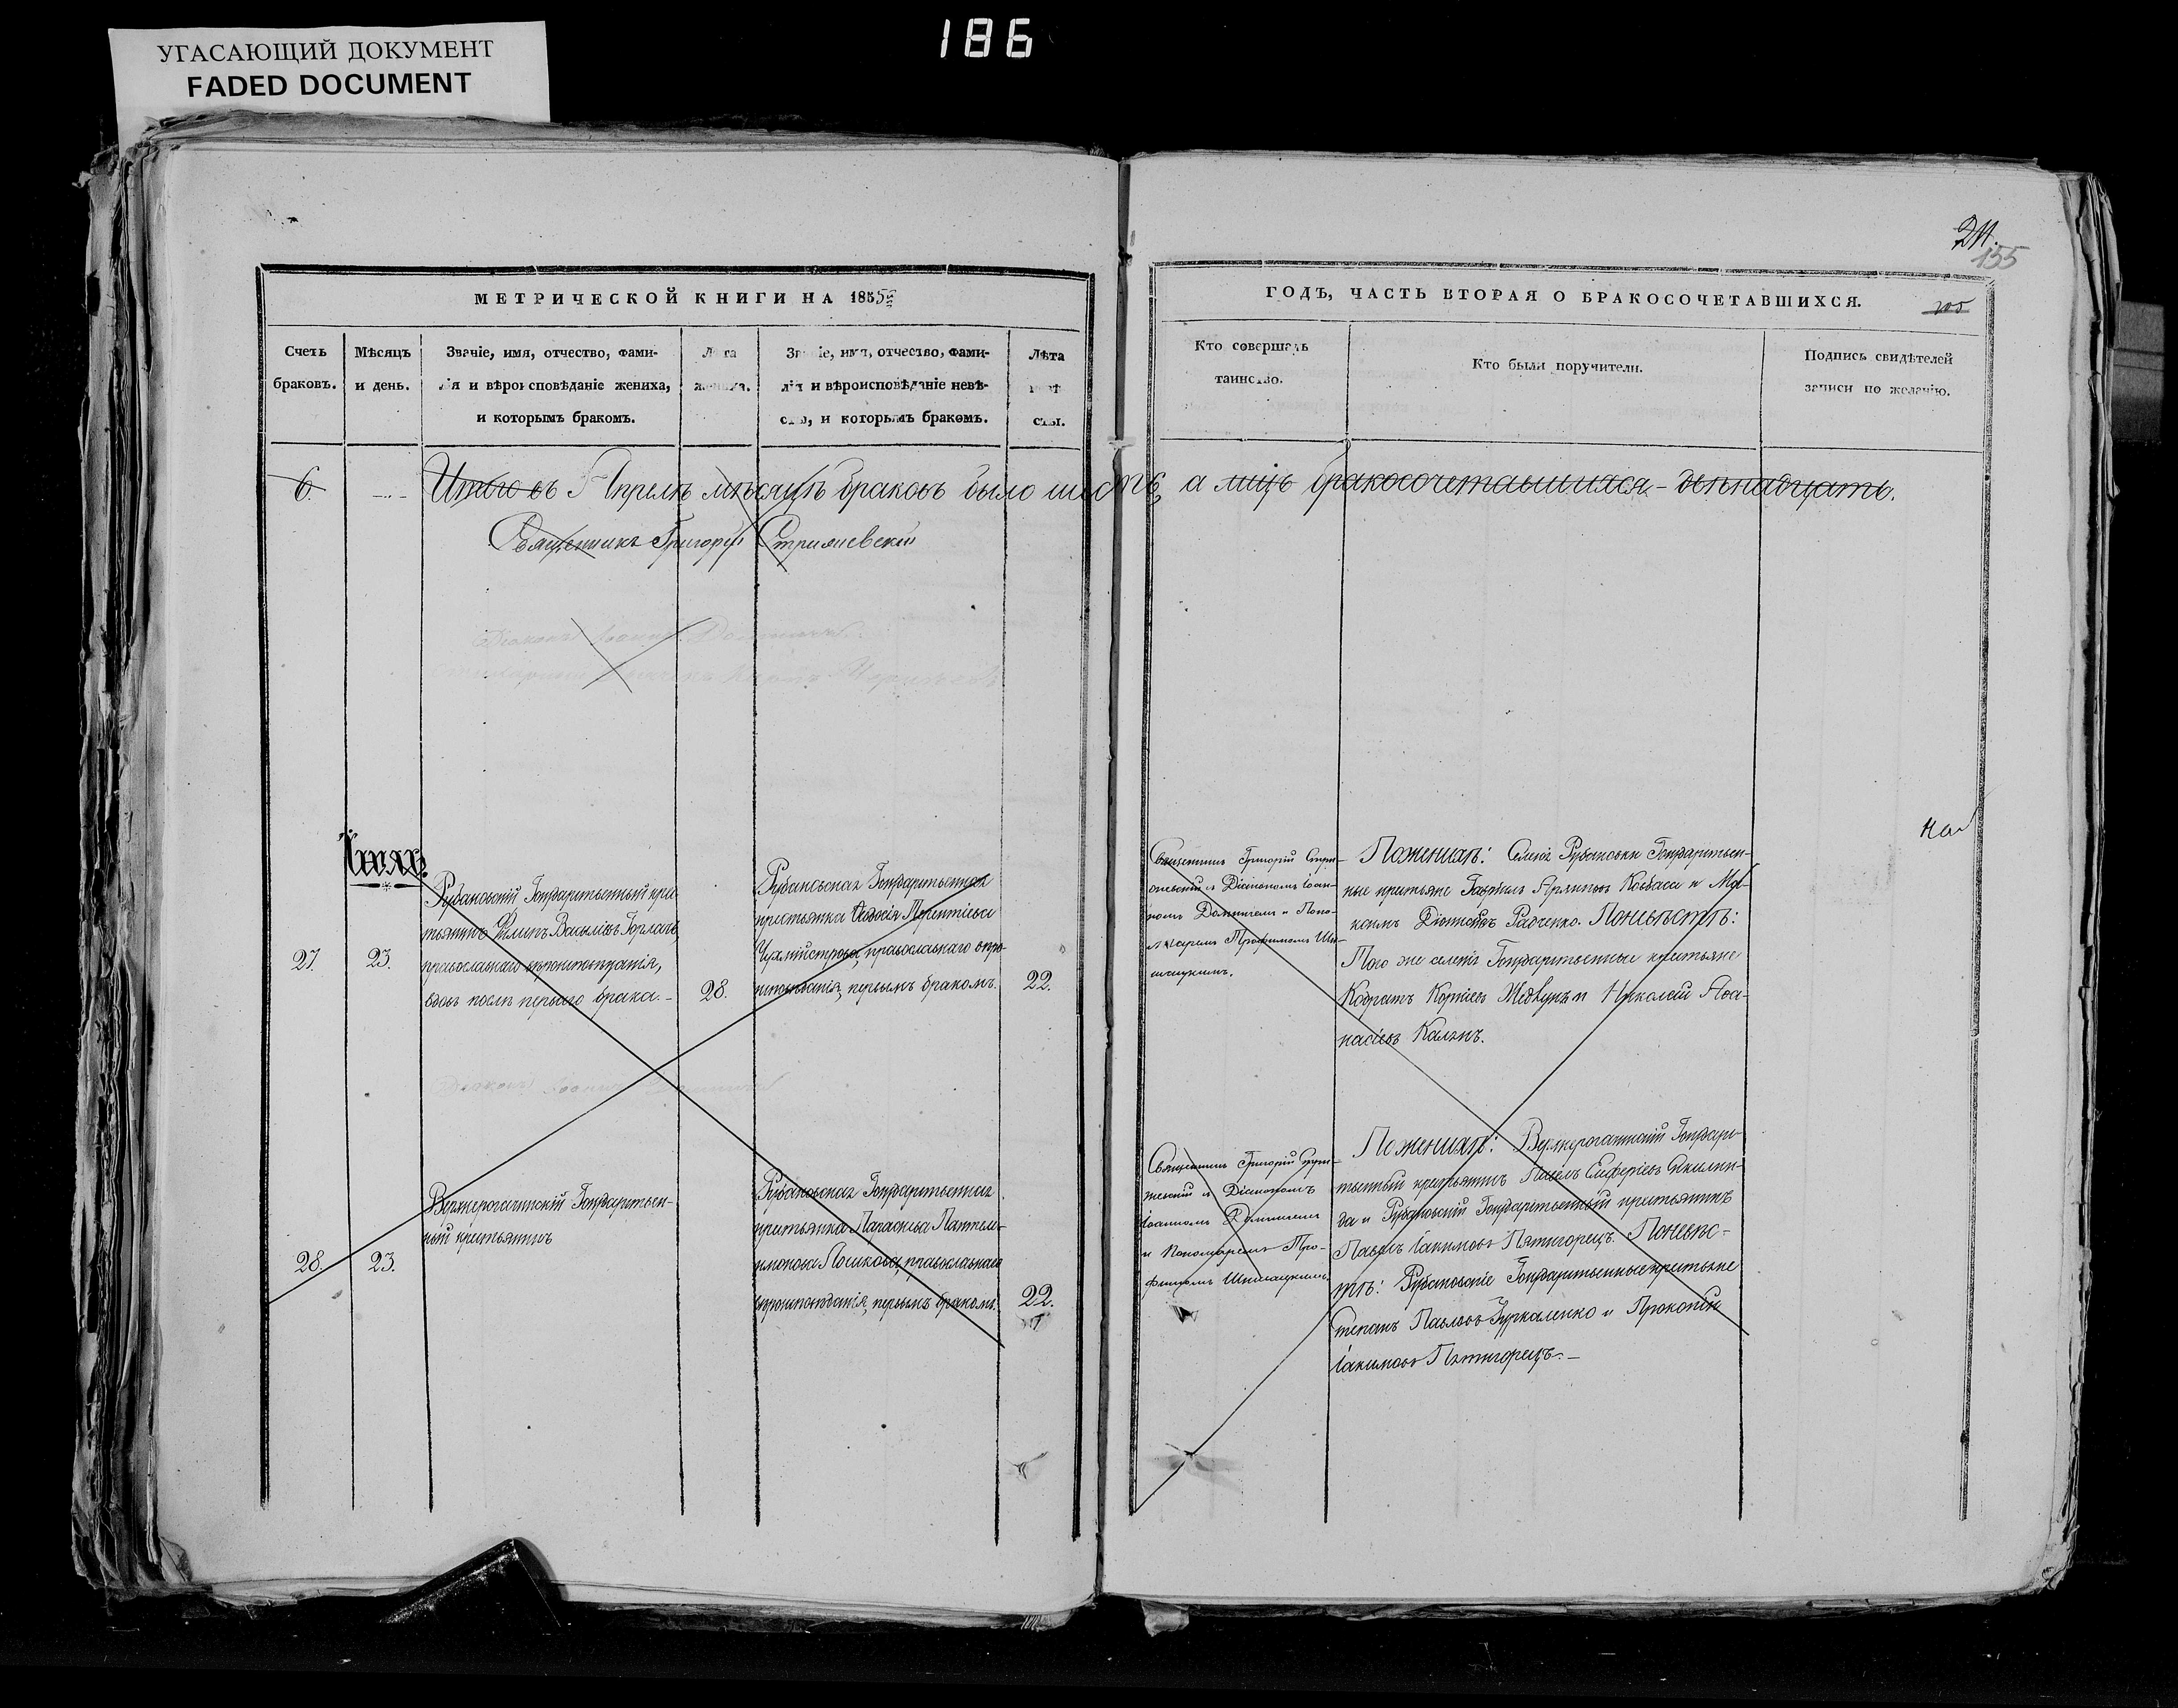 186
УГАСАЮЩИЙ ДОКУМЕНТ
FADED DOCUMENT
211.
155
МЕТРИЧЕСКОЙ КНИГИ НА 1855
ГОДЪ, ЧАСТЬ ВТОРАЯ О БРАКОСОЧЕТАВШИХСЯ.
205
Счетъ браковъ.
Мѣсяцъ и день.
Званіе, имя, отчество, фами-
лія и вѣроисповѣданіе жениха,
и которымъ бракомъ.
Лѣта
жениха.
Званіе, имя, отчество, фами-
лія и вѣроисповѣданіе невѣ-
сты, и которымъ бракомъ.
Лѣта
невѣ-
сты.
Кто совершалъ
таинство.
Кто были поручители.
Подпись свидѣтелей
записи по желанію.
6. Итого въ Апрелѣ мѣсяцѣ браковъ было шесть, а лицъ бракосочетавшихся - двѣнадцать.
Священникъ Григорій
Діаконъ Іоаннъ
Іюль.
27.
23.
Рубановскій Государственный крес-
тьянинъ Филипъ Васильевъ Горлачъ,
православнаго вѣроисповѣданія,
вдовъ послѣ перваго брака.-
28.
Рубановская Государственная
крестьянка Ѳеодосія Терентіева
православнаго вѣро-
исповѣданія, первымъ бракомъ.
22.
Священникъ Григорій
съ Діакономъ Іоан-
номъ и Поно-
маремъ Трофимомъ
По женихѣ: Селенія Рубановки Государствен-
ные крестьяне Гавріилъ Архиповъ Ковбаса и
Радченко. По невѣстѣ:
Того же селенія Государственные крестьяне
Кодратъ Корніевъ и Николай Аѳа-
насіевъ
Діаконъ Іоаннъ
28.
23.
Верхнерогачинскій Государствен-
ный крестьянинъ
Рубановская Государственная
крестьянка Параскева Пантеле-
имонова православнаго
вѣроисповѣданія, первымъ бракомъ.
22.
Священникъ Григорій
съ Діакономъ
Іоанномъ
и Пономаремъ Тро-
фимомъ
По женихѣ: Верхнерогачинскій Государс-
твенный крестьянинъ Павелъ
и Рубановскій Государственный крестьянинъ
Павелъ Іакимовъ Пятигорецъ. По невѣс-
тѣ: Рубановскіе Государственные крестьяне
Степанъ Павловъ и Прокопій
Іакимовъ Пятигорецъ.-